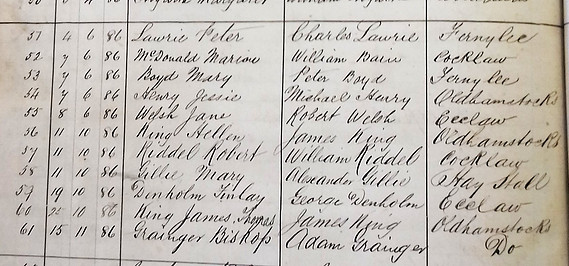 Margaret
51 4 6 86 Lawrie Peter Charles Lawrie Fernylee
52 7 6 86 McDonald Marion William Bain Cocklaw
53 7 6 86 Boyd Mary Peter Boyd Fernylee
54 7 6 86 Henry Jessie Michael Henry Oldhamstocks
55 8 6 86 Welsh Jane Robert Welsh Ecclaw
56 11 10 86 King Hellen James King Oldhamstocks
57 11 10 86 Riddel Robert William Riddel Cocklaw
58 11 10 86 Gillie Mary Alexander Gillie Hay Hall
59 19 10 86 Denholm Finlay George Denholm Ecclaw
60 25 10 86 King James Thomas James King Oldhamstocks
61 15 11 86 Grainger Biskop Adam Grainger Do